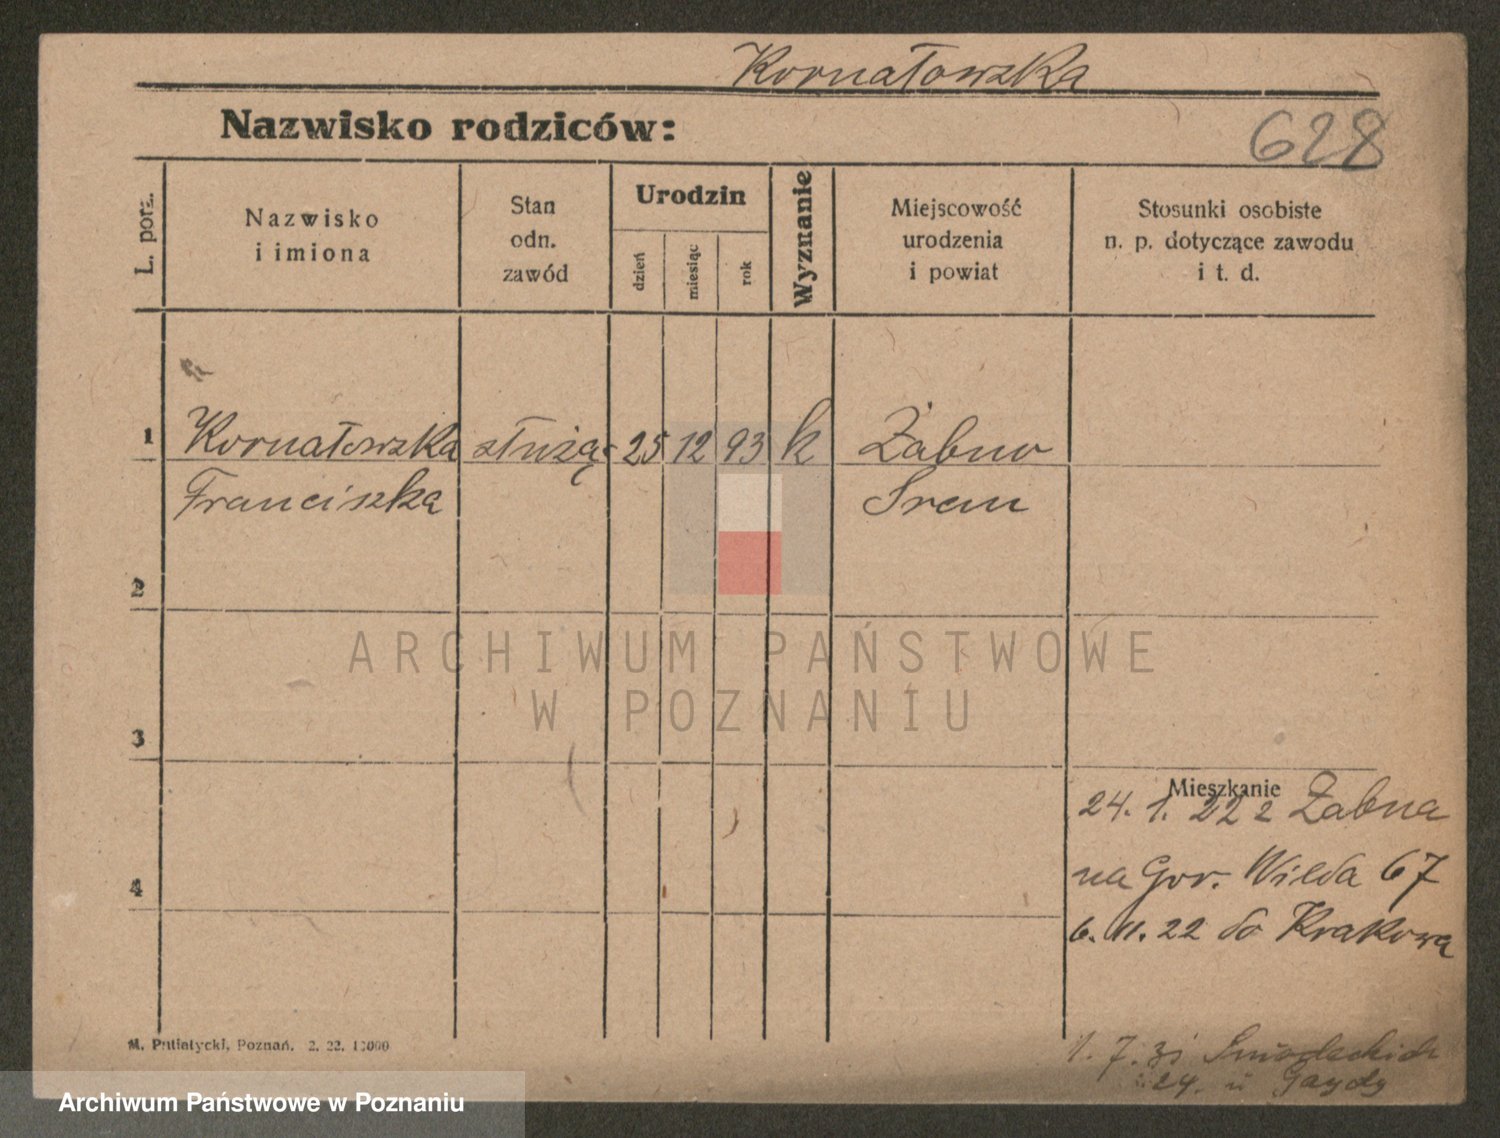 Kornatowska
Nazwisko rodziców:
628
L. porz.
Nazwisko
i imiona
Stan
odn.
zawód
Urodzin
dzień
miesiąc
rok
Wyznanie
Miejscowość
urodzenia
i powiat
Stosunki osobiste
n. p. dotyczące zawodu
i t. d.
1 Kornatowska służąc 25 12 93 k Żabno
Franciszka Śrem
2
3
4
Mieszkanie
24. 1. 22 z Żabna
na Gor. Wilda 67
6. 11. 22 do Krakowa
1. 7.
24. u Gaydy
M. Putiatycki, Poznań. 2. 22. 10000
ARCHIWUM PAŃSTWOWE
W POZNANIU
Archiwum Państwowe w Poznaniu